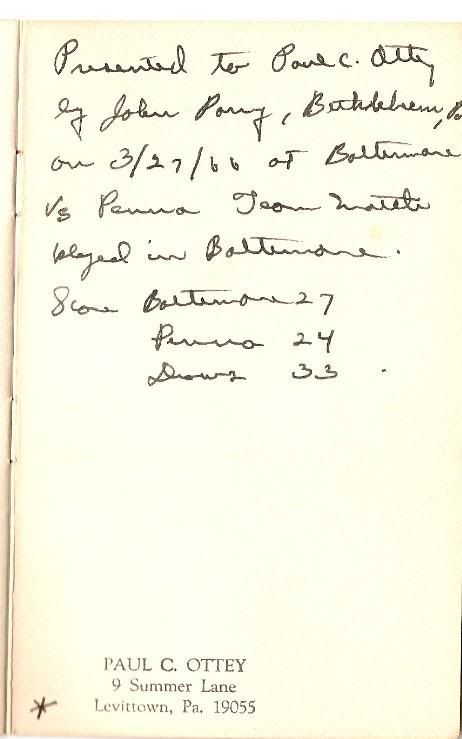 Presented to Paul C. Ottey
by John Parry, Bethlehem, Pa
on 3/27/66 at Baltimore
Vs Penna Team Match
played in Baltimore.
Score Baltimore 27
Penna 24
Draws 33
PAUL C. OTTEY
9 Summer Lane
* Levittown, Pa. 19055